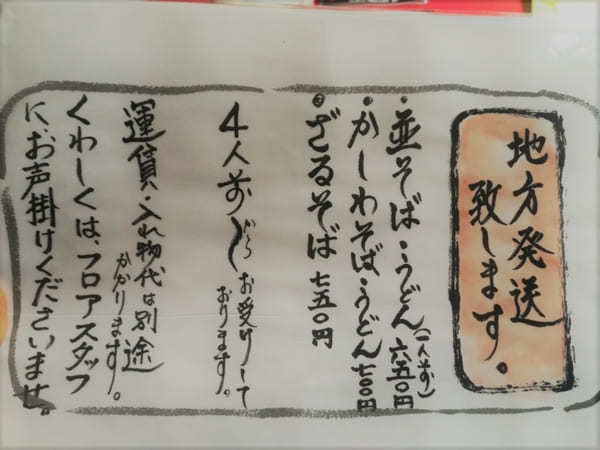 地方発送
致します。
・並そば・うどん(一人前)六五〇円
・かしわそば・うどん七〇〇円
・ざるそば七五〇円
4人前〜
お受けして
おります。
運賃・入れ物代は別途
かかります。
くわしくは、フロアスタッフ
に、お声掛けくださいませ。